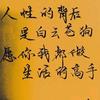 人性的背后
是白云苍狗
愿你我都做
生活的高手